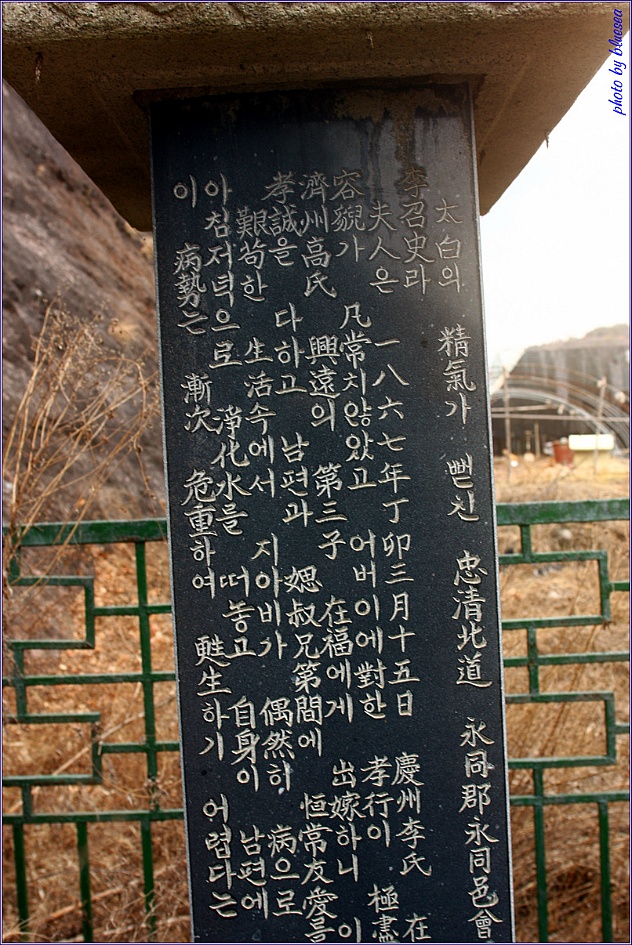 太白의 精氣가 뻗친 忠清北道 永同郡永同邑會
李召史라
夫人은 一八六七年丁卯三月十五日 慶州李氏 在
容貌가 凡常치않았고 어버이에對한 孝行이 極盡
濟州高氏 興遠의 第三子 在福에게 出嫁하니 이
孝誠을 다하고 남편과 媤叔兄第間에 恒常友愛를
艱苟한 生活속에서 지아비가 偶然히 病으로
아침저녁으로 淨化水를 떠놓고 自身이 남편에
이 病勢는 漸次 危重하여 甦生하기 어렵다는
photo by bluesea